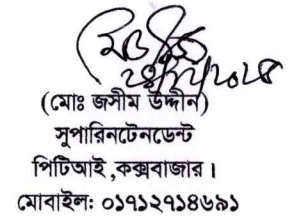 (মোঃ জসীম উদ্দীন)
সুপারিনটেনডেন্ট
পিটিআই ,কক্সবাজার ।
মোবাইল: ০১৭১২৭১৪৬৯১